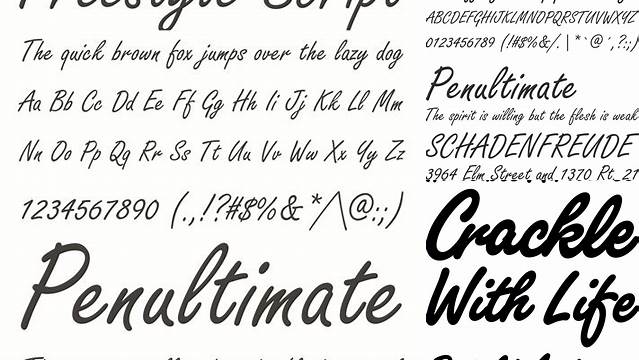 Freestyle Script
The quick brown fox jumps over the lazy dog
Aa Bb Cc Dd Ee Ff Gg Hh Ii Jj Kk Ll Mm
Nn Oo Pp Qq Rr Ss Tt Uu Vv Ww Xx Yy Zz
1234567890 (.,!?#$%&*/\@:;)
Penultimate
ABCDEFGHIJKLMNOPQRSTUVWXYZ
0123456789 (!#$%&/.|*`@´,?:;)
Penultimate
The spirit is willing but the flesh is weak
SCHADENFREUDE
3964 Elm Street and 1370 Rt. 21
Crackle
With Life